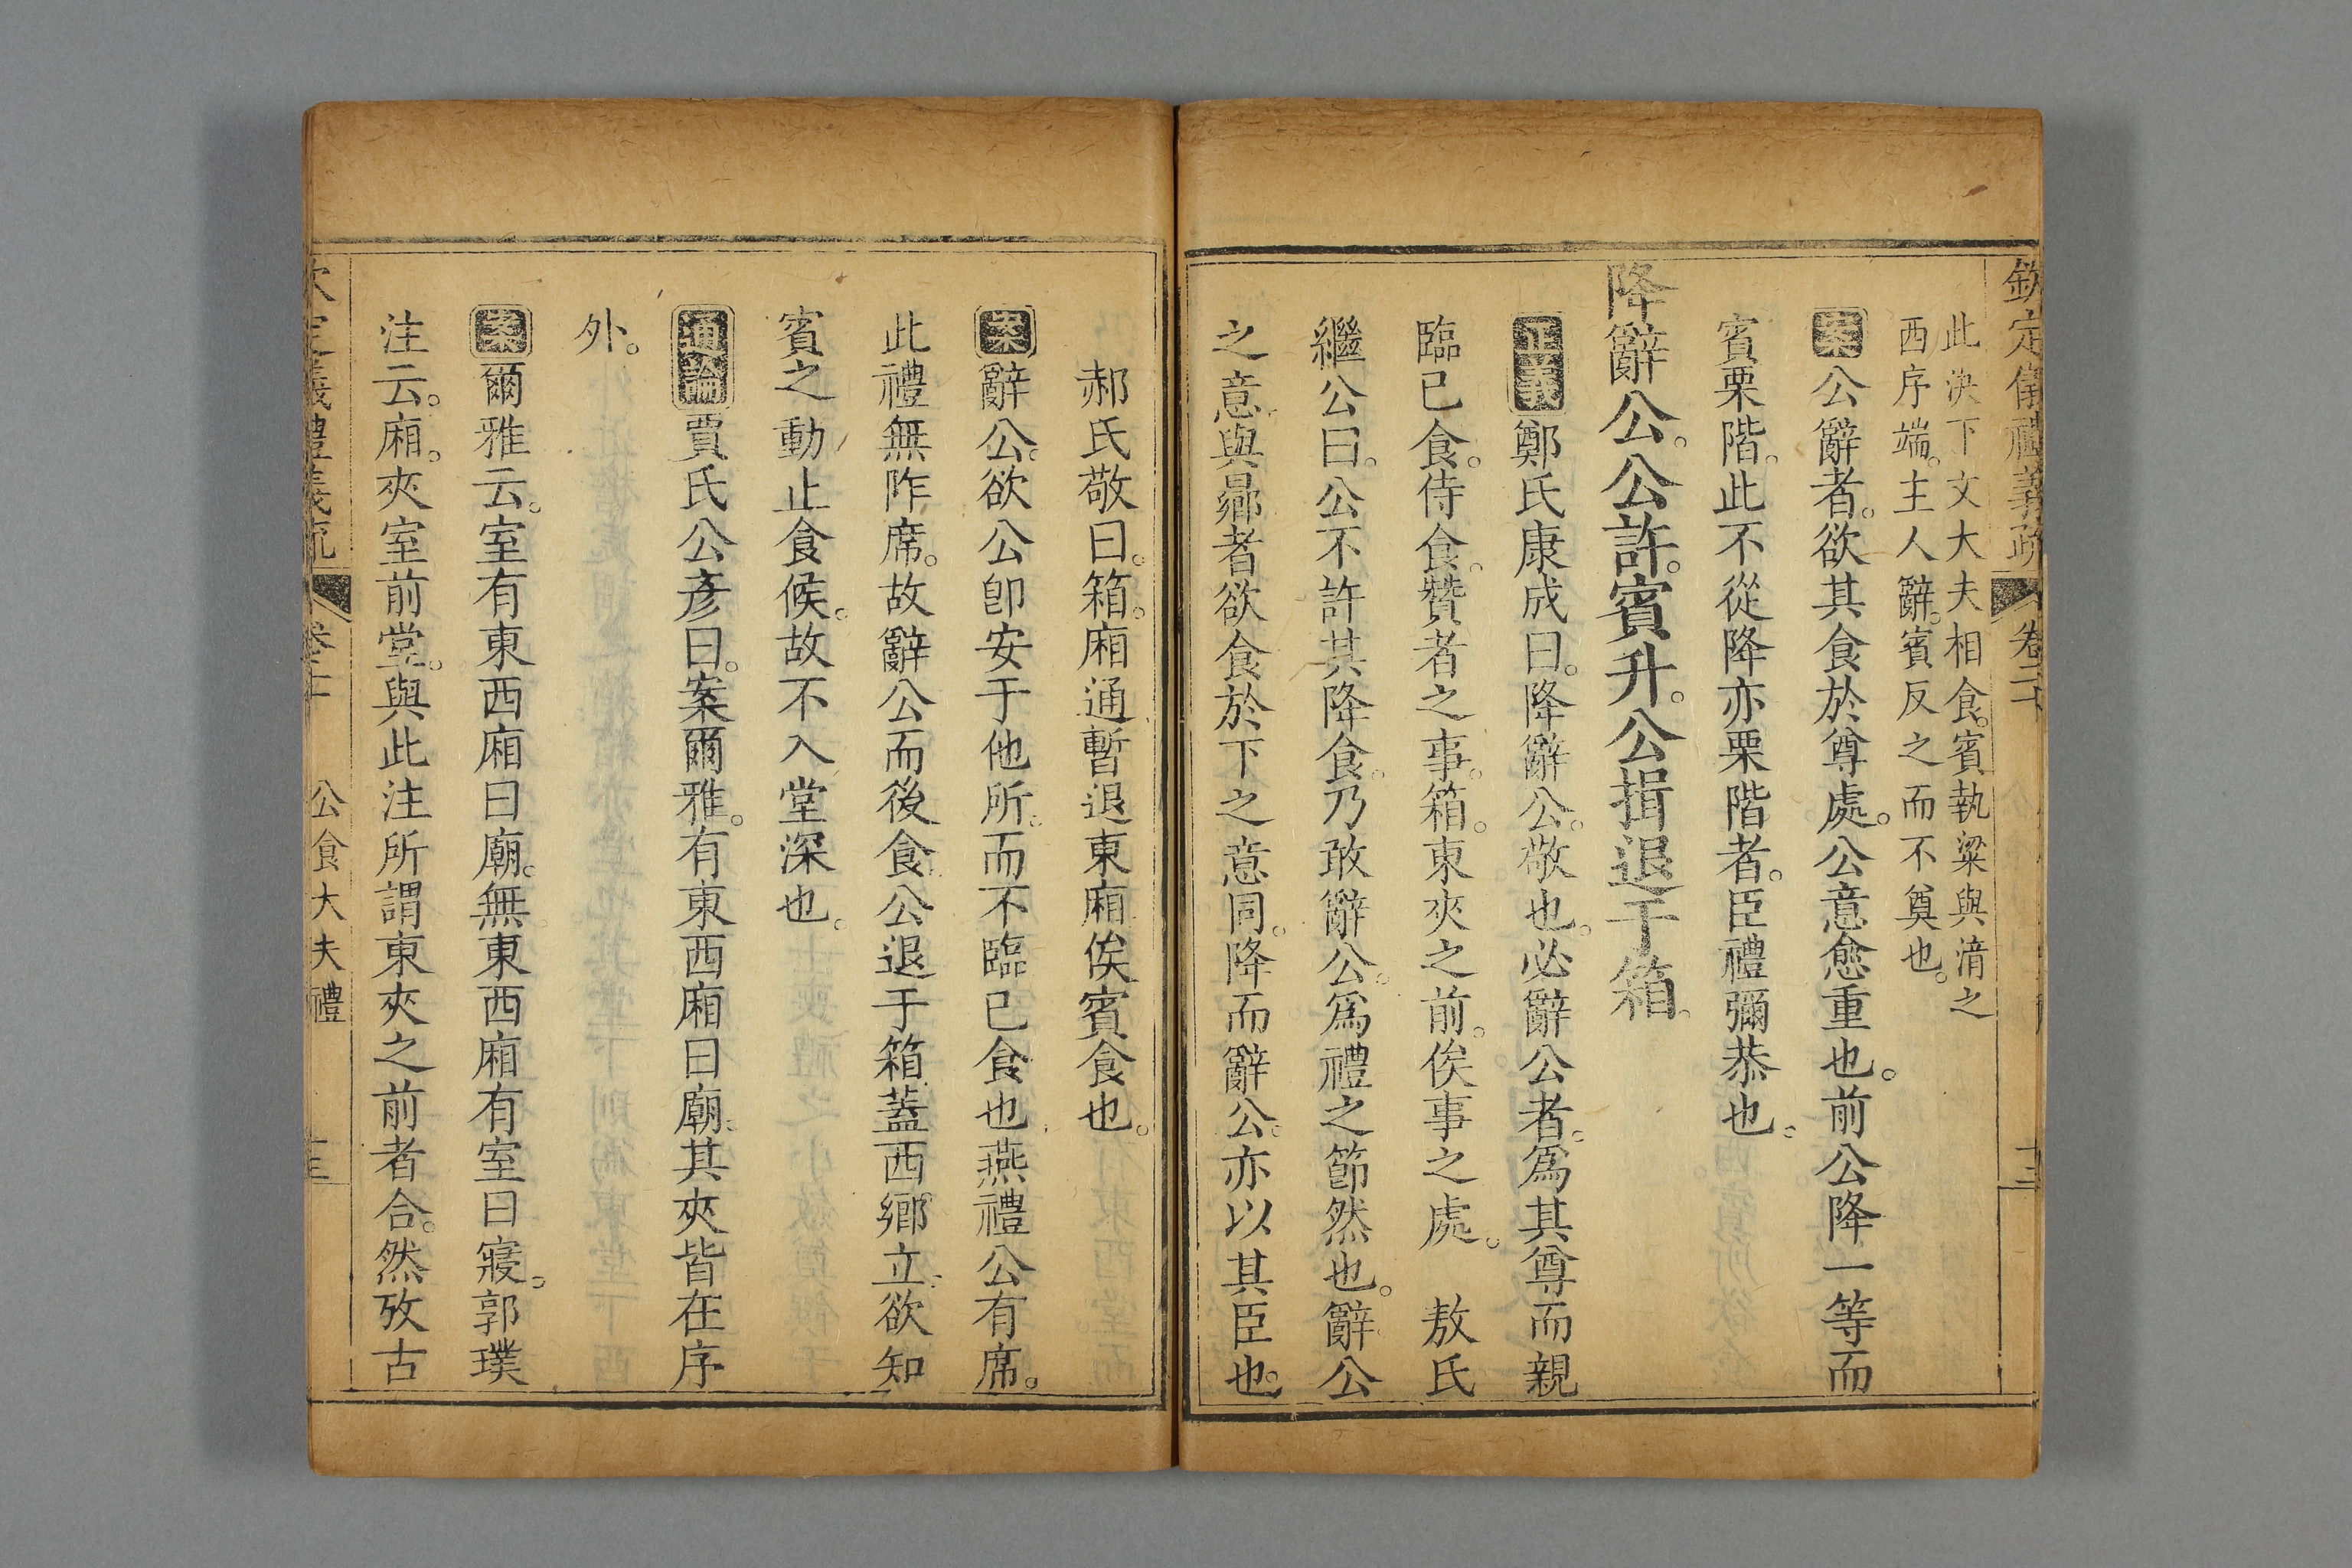 欽定儀禮義疏 卷二十 十三
此決下文大夫相食。賓執粱與湆之
西序端。主人辭。賓反之而不奠也。
案公辭者。欲其食於尊處。公意愈重也。前公降一等而
賓栗階。此不從降亦栗階者。臣禮彌恭也。
降辭公。公許。賓升。公揖退于箱。
正義鄭氏康成曰。降辭公。敬也。必辭公者。爲其尊而親
臨已食。侍食。贊者之事。箱。東夾之前。俟事之處。 敖氏
繼公曰。公不許其降食。乃敢辭公。爲禮之節然也。辭公
之意。與曏者欲食於下之意同。降而辭公。亦以其臣也。
郝氏敬曰。箱。廂通暫退東廂俟賓食也。
案辭公。欲公卽安于他所。而不臨已食也燕禮公有席。
此禮無阼席。故辭公而後食。公退于箱蓋西鄉立。欲知
賓之動止食候。故不入堂深也。
通論賈氏公彥曰。案爾雅。有東西廂曰廟。其夾皆在序
外。
案爾雅云。室有東西廂曰廟。無東西廂有室曰寢。郭璞
注云。廂。夾室前堂。與此注所謂東夾之前者合。然攷古
公食大夫禮